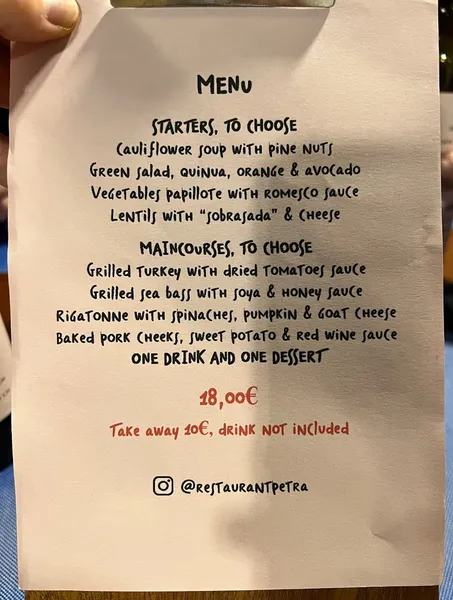 MENU
STARTERS, TO CHOOSE
Cauliflower soup with pine nuts
Green salad, quinua, orange & avocado
Vegetables papillote with romesco sauce
Lentils with “sobrasada” & cheese
MAINCOURSES, TO CHOOSE
Grilled turkey with dried tomatoes sauce
Grilled sea bass with soya & honey sauce
Rigatonne with spinaches, pumpkin & goat cheese
Baked pork cheeks, sweet potato & red wine sauce
ONE DRINK AND ONE DESSERT
18,00€
Take away 10€, drink not included
@restaurantpetra